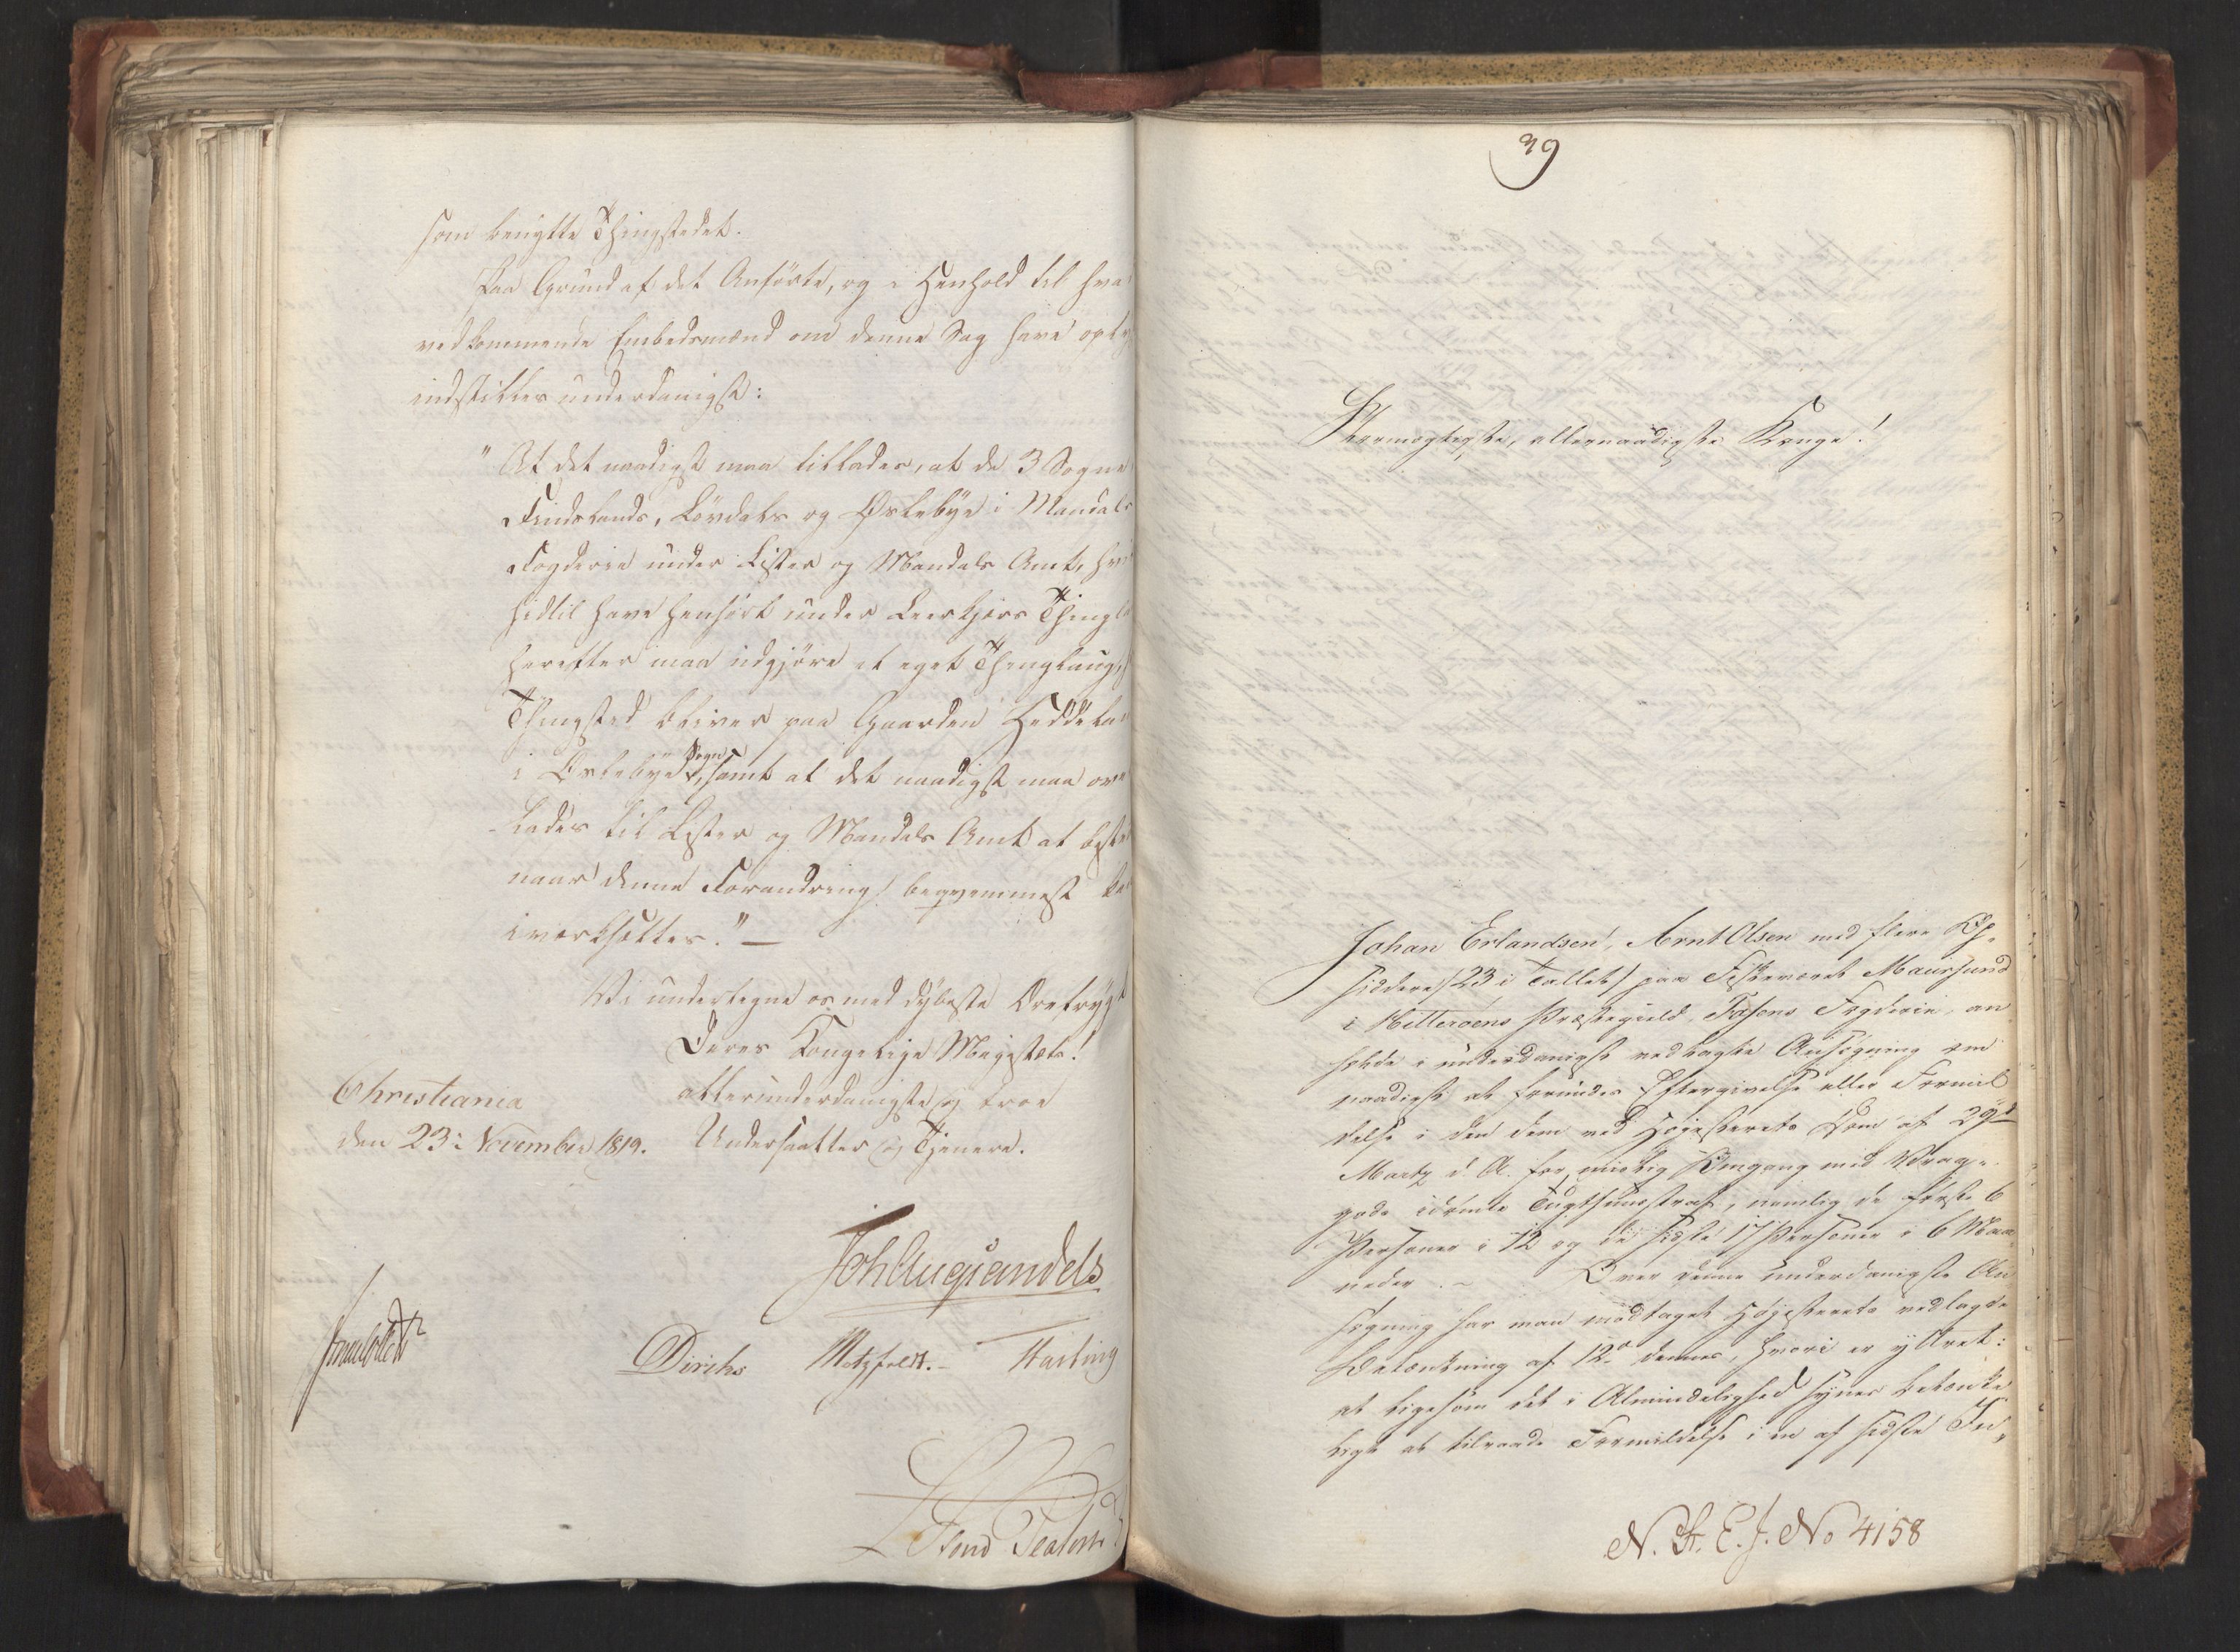 som benytte Thingstedet.
Paa Grund af det Anførte, og i Henhold til hva
vedkommende Embedsmænd om denne Sag have opl
indstilles underdanigst:
"At det naadigst maa tillades, at de 3 Sogne
Findslands, Løvdals og Øslebye i Mandals
Fogderie under Lister og Mandals Amt, hv
hidtil have henhørt under Leerkjers Thingl
herefter maa udgjøre et eget Thinglaug,
Thingsted bliver paa Gaarden Heddela
i Øslebye Sogn, samt at det naadigst maa ove
-lades til Lister og Mandals Amt at beste
naar denne Forandring beqvemmest ka
iværksættes." —
Vi undertegne os med dybeste Ærefrygt
Deres Kongelige Majestæts!
allerunderdanigste og troe
Undersaatter og Tjenere.
Christiania
den 23: November 1819.
Joh Aug Sandels
Jonas Collett
Diriks Motzfeldt. Harting
39
Stormægtigste, allernaadigste Konge!
Johan Erlandsen, Arnt Olsen med flere Op-
siddere /23 i Tallet/ paa Fiskeværet Maursund
i Hitterøens Præstegield, Fosens Fogderie, an
holde i underdanigst vedlagte Ansøgning om
naadigst at forundes Eftergivelse eller Formil
delse i den dem ved Højesterets Dom af 29de
Martz d. A. for uretvis Omgang med Vrag-
gods idømte Tugthuusstraf, nemlig de første 6
Personer i 12 og de sidste 17 Personer i 6 Maa-
neder. — Over denne underdanigste An
søgning har man modtaget Højesterets vedlagde
Betænkning af 12te dennes, hvori er yttret:
at ligesom det i Almindelighed synes betænke
ligt at tilraade Formildelse i en af sidste In-
N. St. E. J. No 4158